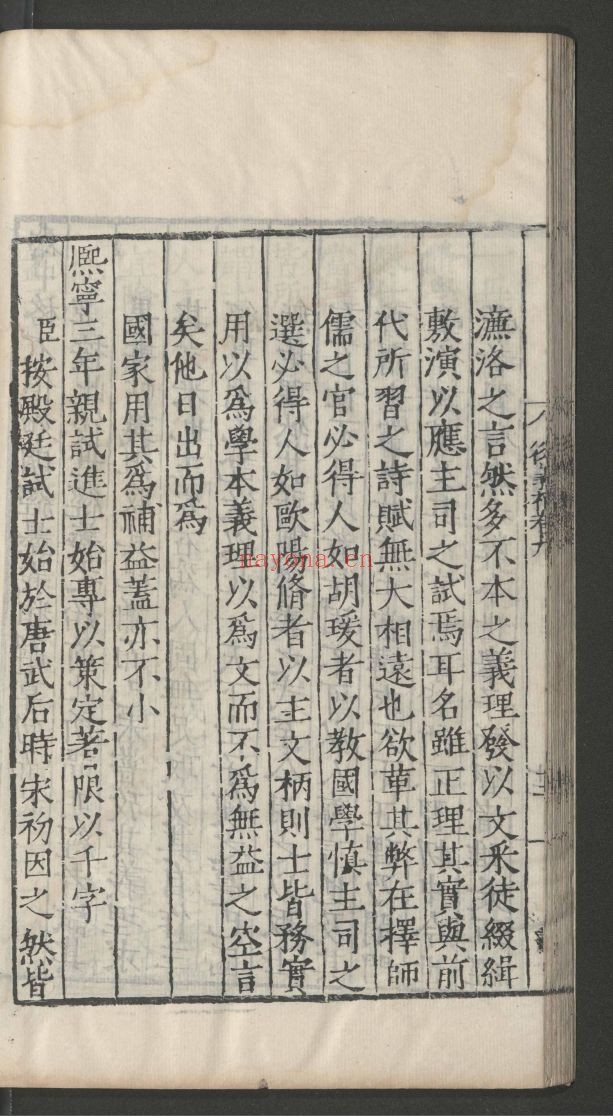 濂洛之言然多不本之義理發以文釆徒綴緝
敷演以應主司之試焉耳名雖正理其實與前
代所習之詩賦無大相遠也欲革其弊在擇師
儒之官必得人如胡瑗者以教國學慎主司之
選必得人如歐陽脩者以主文柄則士皆務實
用以爲學本義理以爲文而不爲無益之空言
矣他日出而爲
國家用其爲補益蓋亦不小
熈寧三年親試進士始專以策定著限以千字
臣按殿廷試士始於唐武后時宋初因之然皆
nayona.cn